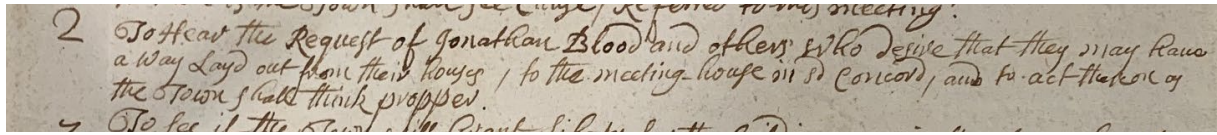 the Town shall see Cause, Referred to this meeting.
2 To Hear the Request of Jonathan Blood and others who desire that they may have
a Way Layd out from their houses, to the meeting-house in sd Concord, and to act thereon as
the Town shall think propper.
To see if the Town will Grant